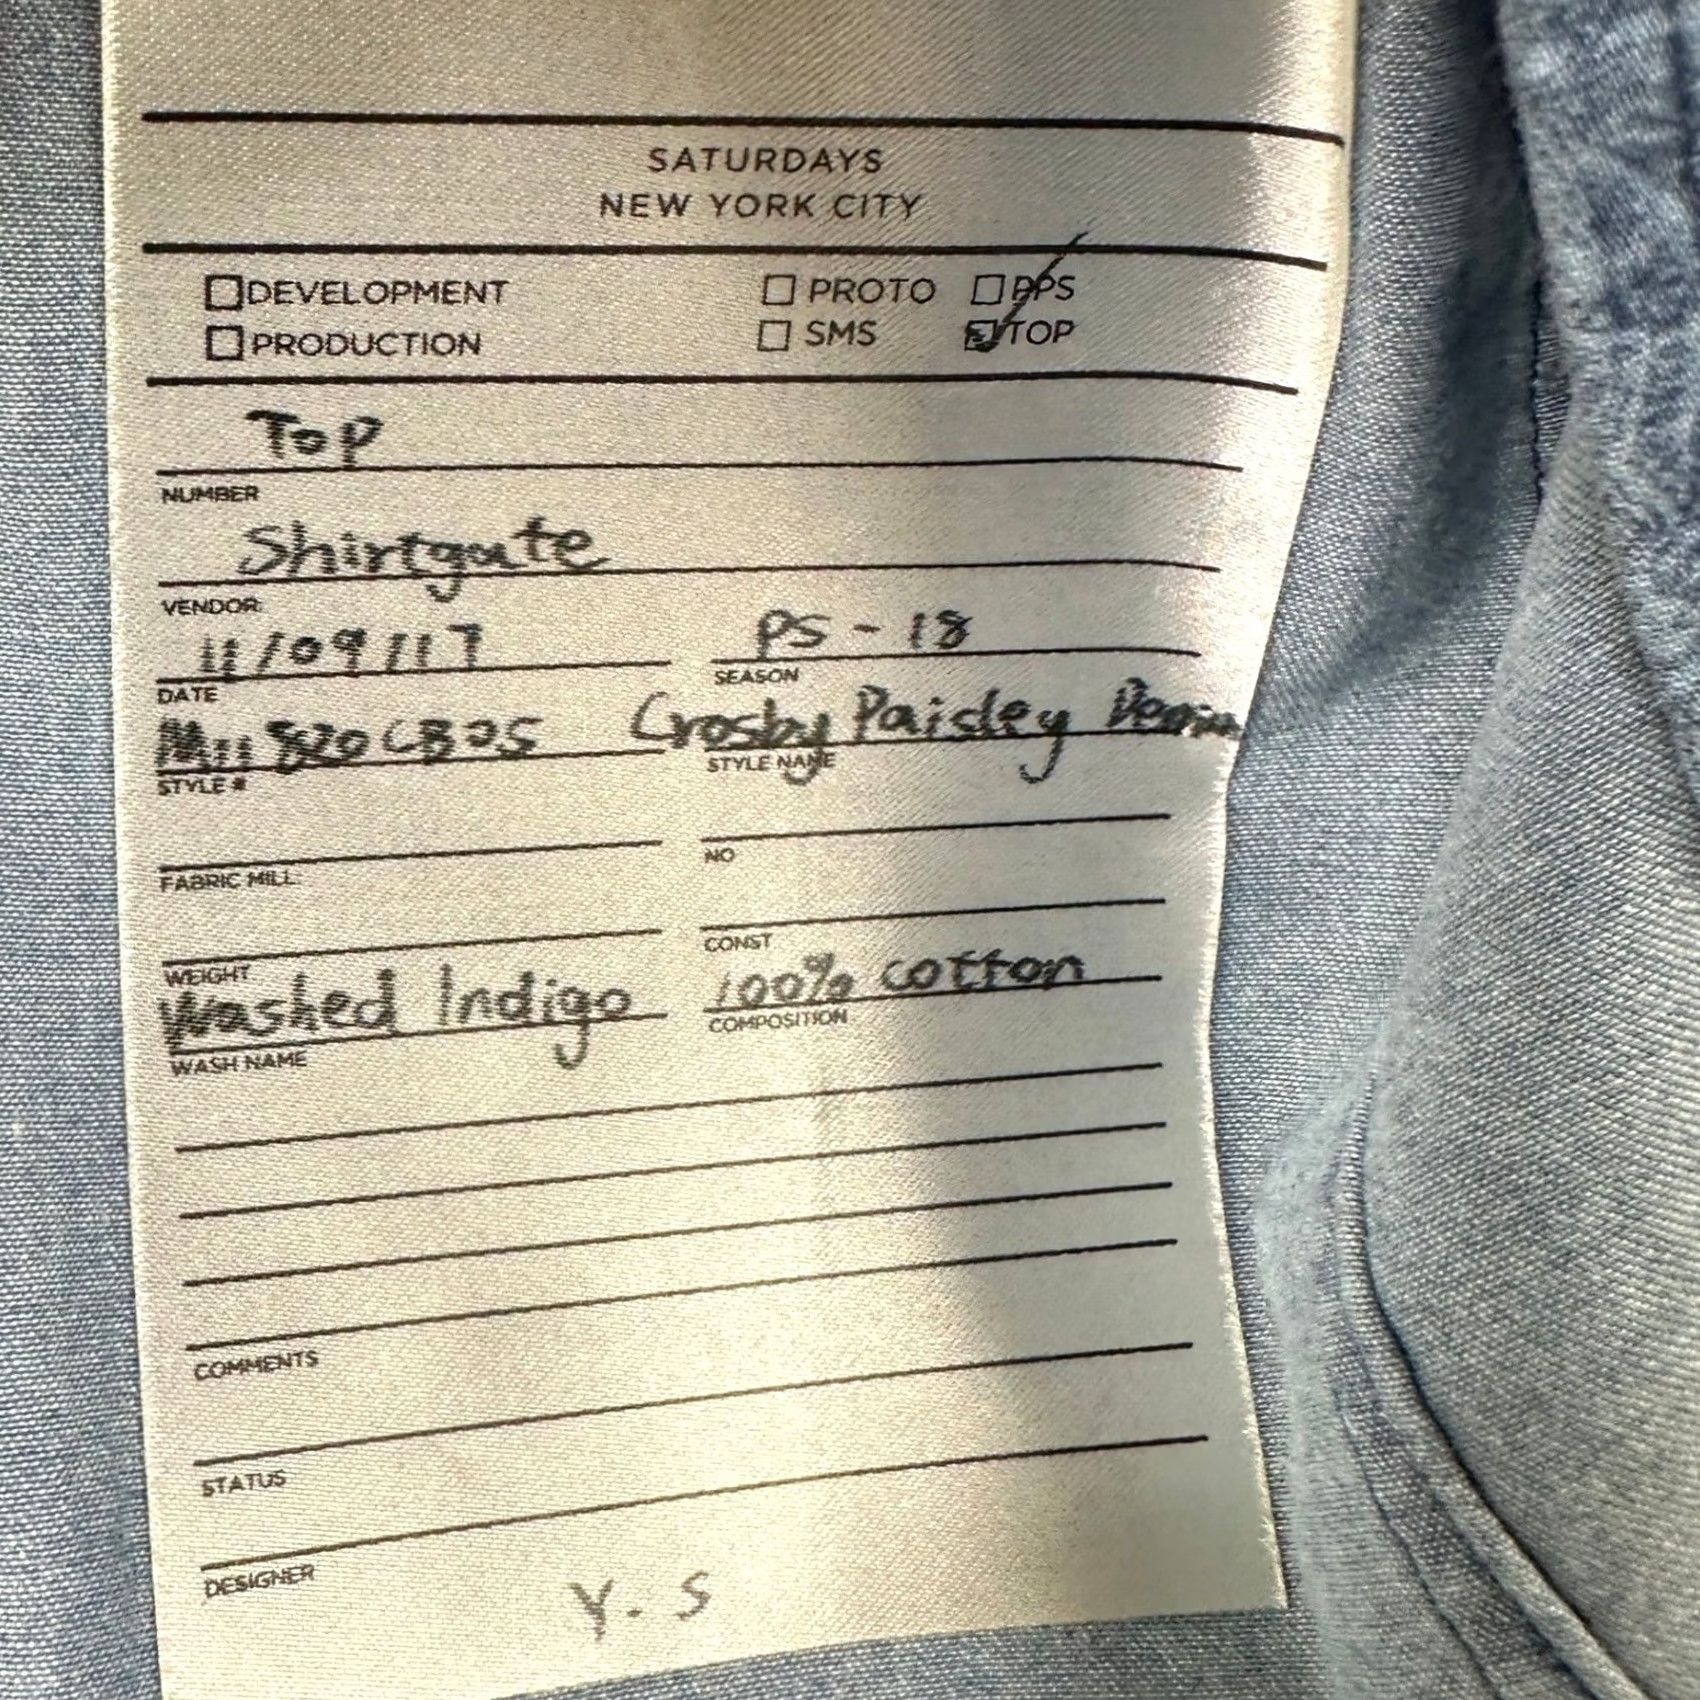 SATURDAYS
NEW YORK CITY
DEVELOPMENT PROTO PPS
PRODUCTION SMS TOP
Top
NUMBER
Shirtgate
VENDOR:
11/09/17 PS - 18
DATE SEASON
M11820CB25 Crosby Paisley Denim
STYLE # STYLE NAME
FABRIC MILL: NO
WEIGHT CONST
Washed Indigo 100% cotton
WASH NAME COMPOSITION
COMMENTS
STATUS
DESIGNER
Y. S